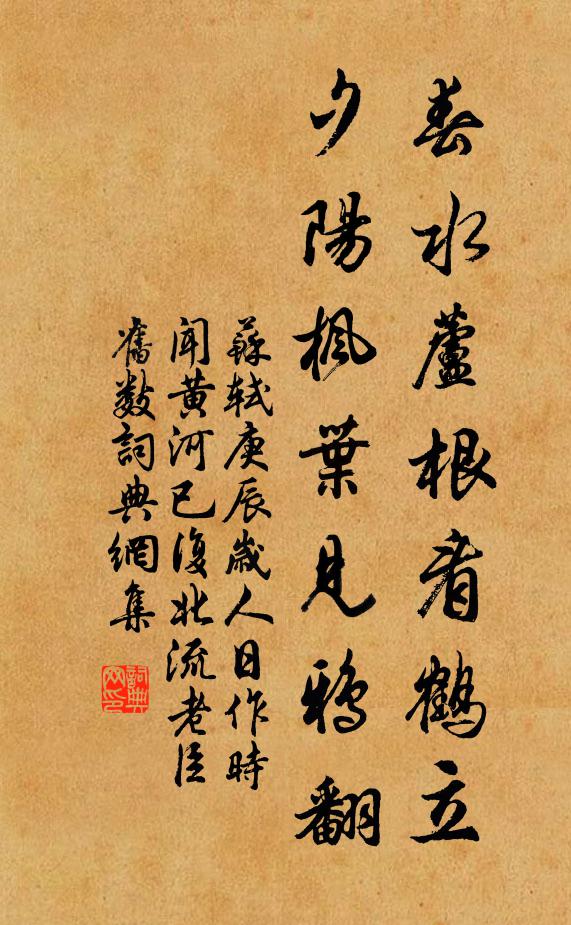 春水蘆根看鶴立
夕陽楓葉見鴉翻
蘇軾庚辰歲人日作時
聞黃河已復北流老臣
舊數詞典網集
詞典
网印